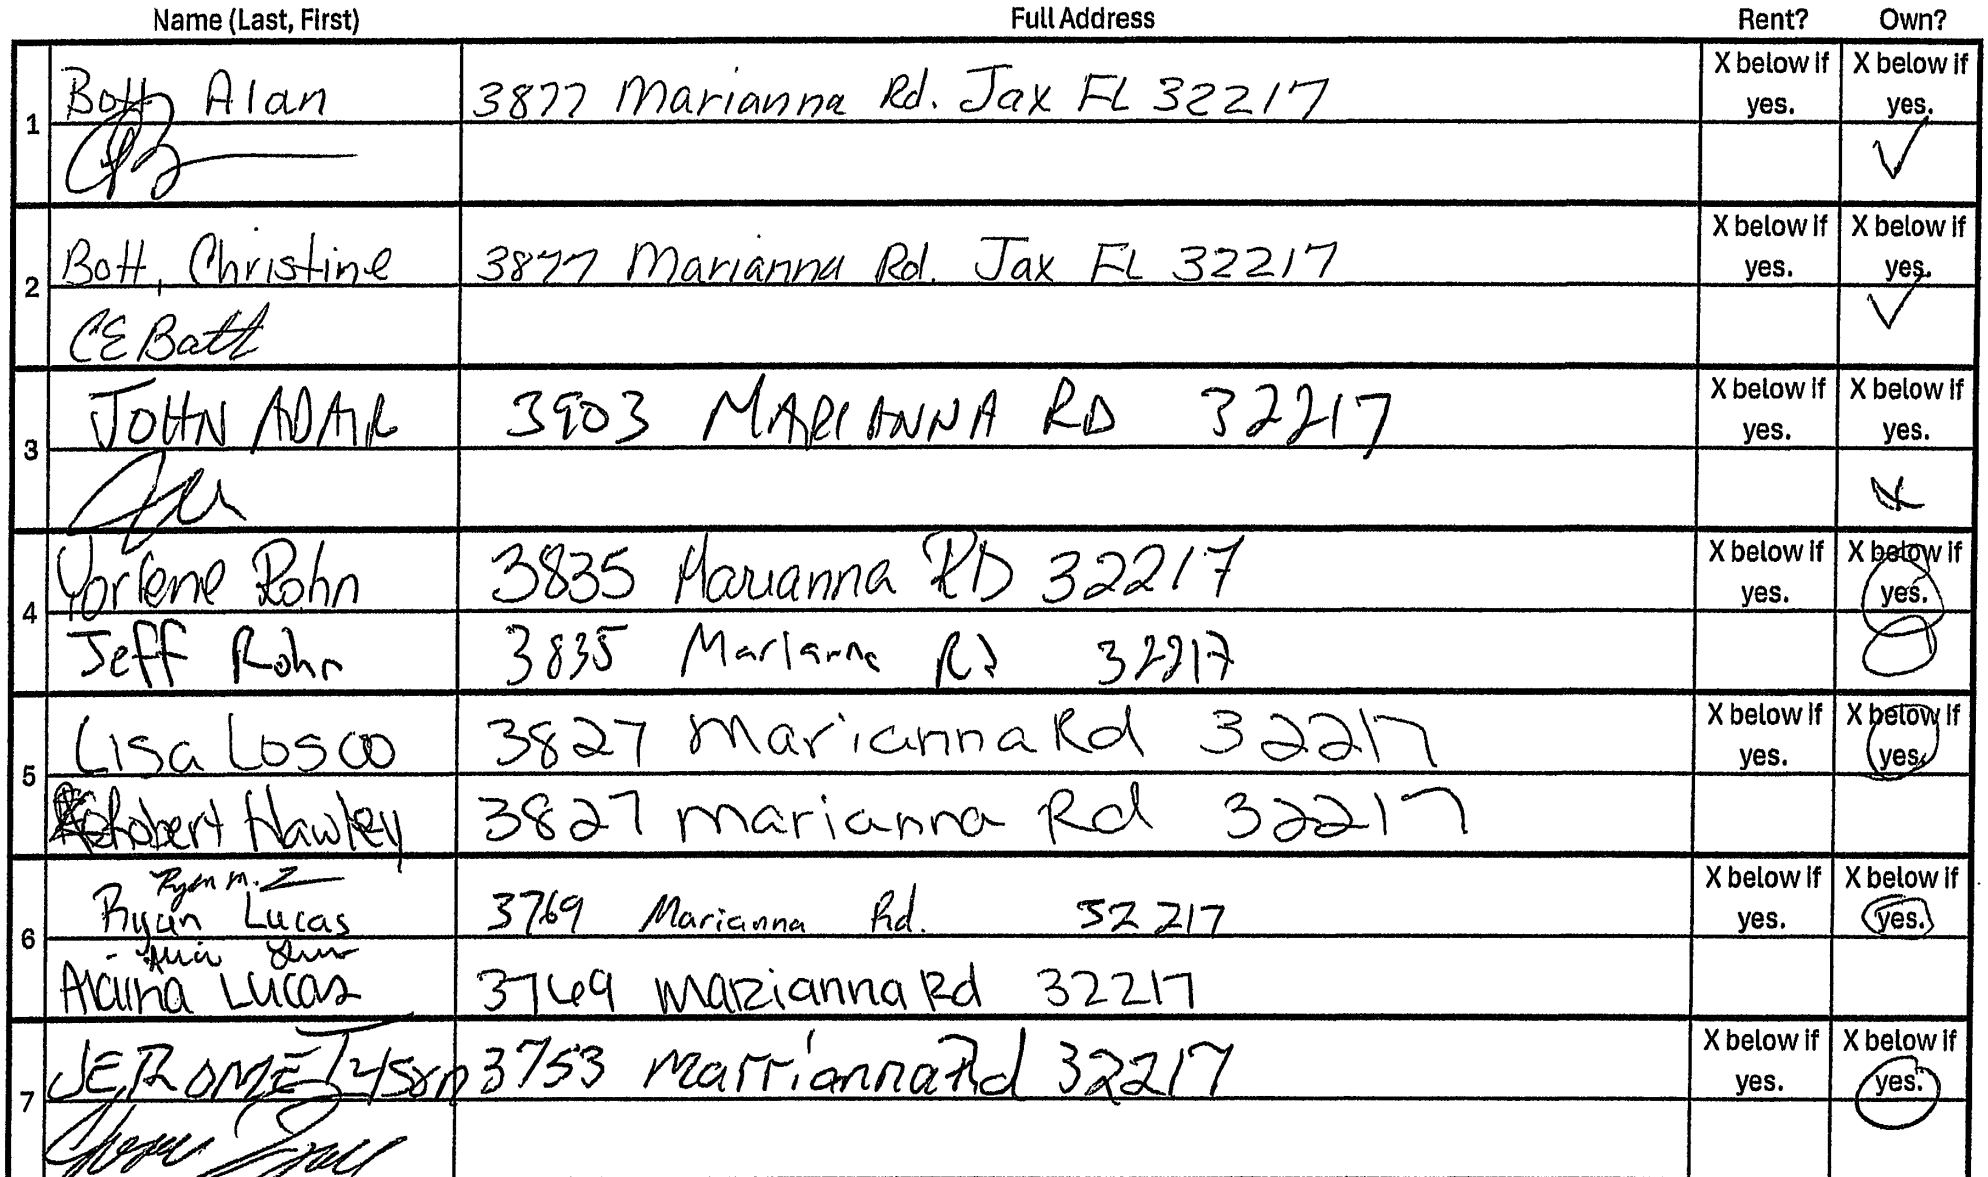 Name (Last, First) Full Address Rent? Own?
1 Bott, Alan 3877 Marianna Rd. Jax FL 32217 X below if yes. X below if yes.
✓
2 Bott, Christine 3877 Marianna Rd. Jax FL 32217 X below if yes. X below if yes.
CE Bott ✓
3 JOHN ADAIR 3903 MARIANNA RD 32217 X below if yes. X below if yes.
X
4 Yorlene Rohn 3835 Marianna RD 32217 X below if yes. X below if yes.
Jeff Rohn 3835 Marianna Rd 32217
5 Lisa Losco 3827 Marianna Rd 32217 X below if yes. X below if yes.
Robert Hawley 3827 marianna Rd 32217
6 Ryan Lucas 3769 Marianna Rd. 32217 X below if yes. X below if yes.
Alaina Lucas 3769 Marianna Rd 32217
7 JEROME Tyson 3753 Marrianna Rd 32217 X below if yes. X below if yes.